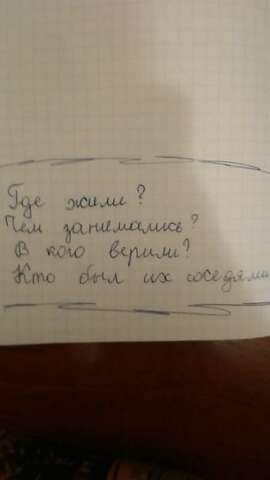 Где жили?
Чем занемались?
В кого верили?
Кто был их соседями